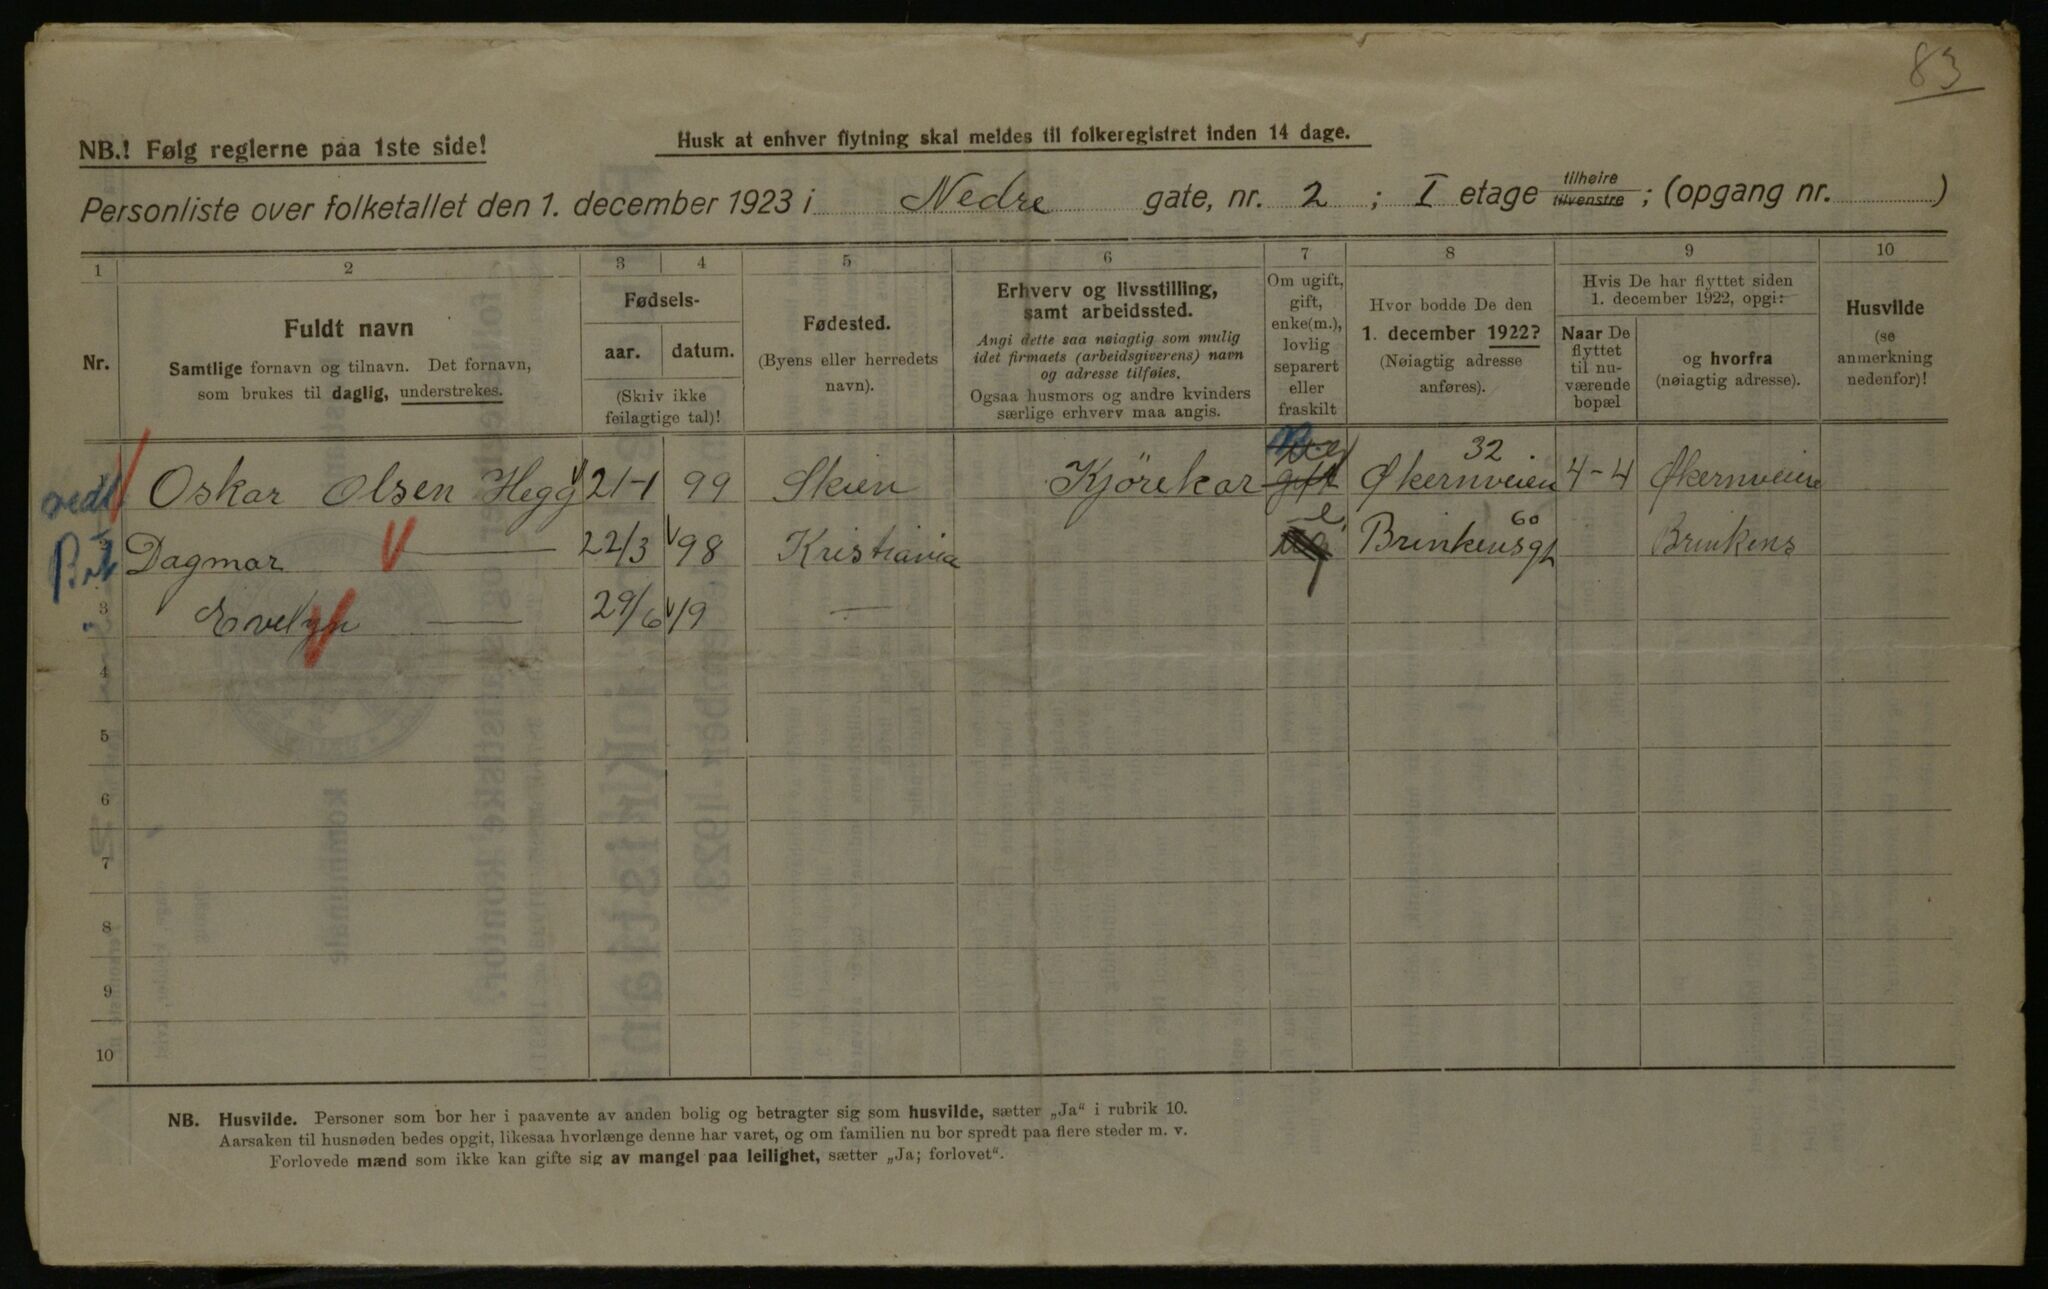 83
NB.! Følg reglerne paa 1ste side!
Husk at enhver flytning skal meldes til folkeregistret inden 14 dage.
Personliste over folketallet den 1. december 1923 i Nedre gate, nr. 2 ; I etage tilhøire tilvenstre ; (opgang nr. )
1 2 3 4 5 6 7 8 9 10
Nr.
Fuldt navn
Samtlige fornavn og tilnavn. Det fornavn,
som brukes til daglig, understrekes.
Fødsels-
aar. datum.
(Skriv ikke
feilagtige tal)!
Fødested.
(Byens eller herredets
navn).
Erhverv og livsstilling,
samt arbeidssted.
Angi dette saa nøiagtig som mulig
idet firmaets (arbeidsgiverens) navn
og adresse tilføies.
Ogsaa husmors og andre kvinders
særlige erhverv maa angis.
Om ugift,
gift,
enke(m.),
lovlig
separert
eller
fraskilt
Hvor bodde De den
1. december 1922?
(Nøiagtig adresse
anføres).
Hvis De har flyttet siden
1. december 1922, opgi:
Naar De
flyttet
til nu-
værende
bopæl
og hvorfra
(nøiagtig adresse).
Husvilde
(se
anmerkning
nedenfor)!
Oskar Olsen Hegg 21-1 99 Skien Kjörekar gift Økernveien 32 4-4 Økernveien
Dagmar — 22/3 98 Kristiania Brinkensgt 60 Brinkens
3 Evelyn — 29/6 19 —
4
5
6
7
8
9
10
NB. Husvilde. Personer som bor her i paavente av anden bolig og betragter sig som husvilde, sætter „Ja“ i rubrik 10.
Aarsaken til husnøden bedes opgit, likesaa hvorlænge denne har varet, og om familien nu bor spredt paa flere steder m. v.
Forlovede mænd som ikke kan gifte sig av mangel paa leilighet, sætter „Ja; forlovet“.